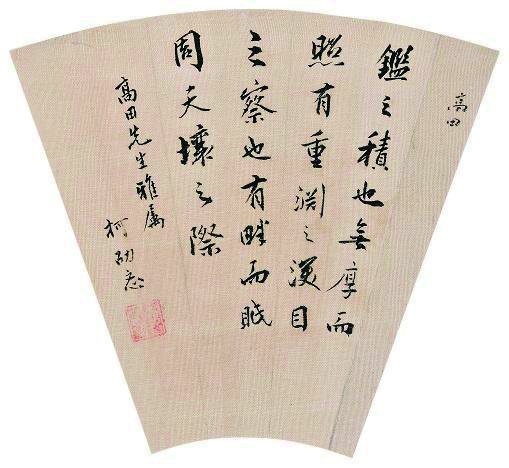 高田
鑑之積也無厚而
照有重淵之深目
之察也有畔而眡
周天壤之際
高田先生雅属
柯劭忞